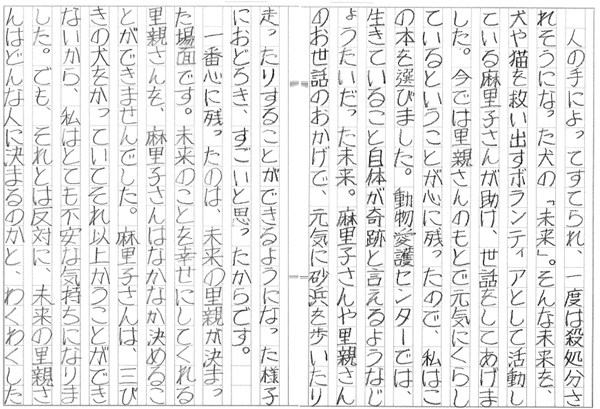 人の手によってすてられ、一度は殺処分さ
れそうになった犬の「未来」。そんな未来を、
犬や猫を救い出すボランティアとして活動し
ている麻里子さんが助け、世話をしてあげま
した。今では里親さんのもとで元気にくらし
ているということが心に残ったので、私はこ
の本を選びました。動物愛護センターでは、
生きていること自体が奇跡と言えるようなじ
ょうたいだった未来。麻里子さんや里親さん
のお世話のおかげで、元気に砂浜を歩いたり
走ったりすることができるようになった様子
におどろき、すごいと思ったからです。
　一番心に残ったのは、未来の里親が決まっ
た場面です。未来のことを幸せにしてくれる
里親さんを、麻里子さんはなかなか決めるこ
とができませんでした。麻里子さんは、三び
きの犬をかっていてそれ以上かうことができ
ないから、私はとても不安な気持ちになりま
した。でも、それとは反対に、未来の里親さ
んはどんな人に決まるのかと、わくわくした